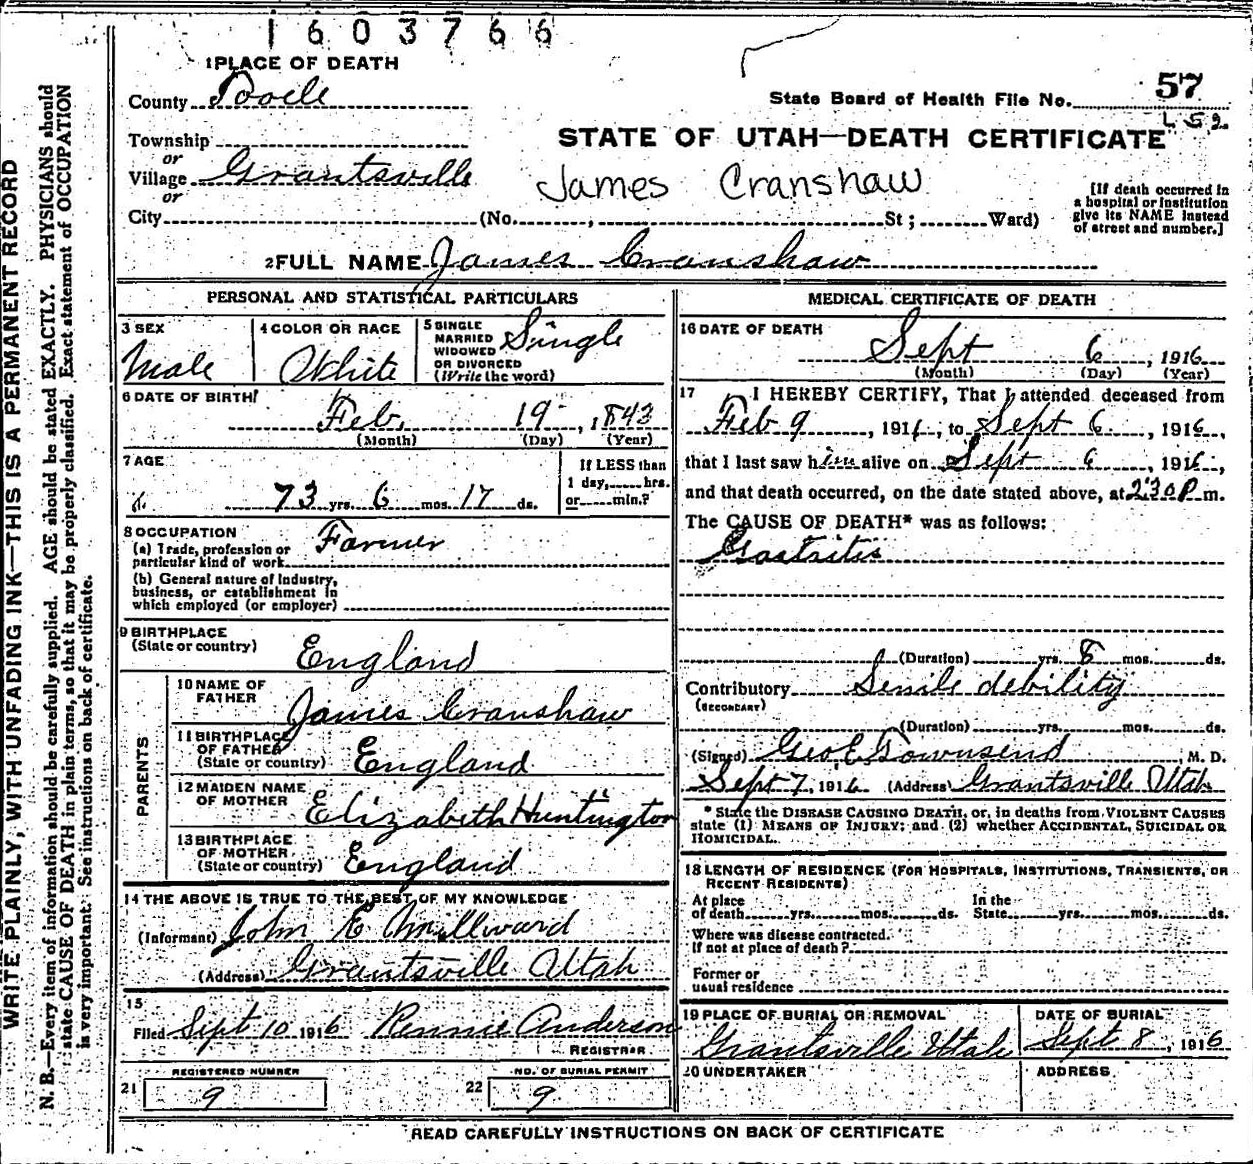 1603766
1 PLACE OF DEATH
County Tooele
State Board of Health File No. 57
Township
or
Village Grantsville
or
City (No. , St ; Ward)
STATE OF UTAH—DEATH CERTIFICATE
James Cranshaw
[If death occurred in
a hospital or institution
give its NAME instead
of street and number.]
2 FULL NAME James Cranshaw
PERSONAL AND STATISTICAL PARTICULARS
3 SEX
Male
4 COLOR OR RACE
White
5 SINGLE
MARRIED
WIDOWED
OR DIVORCED
(Write the word)
Single
6 DATE OF BIRTH
Feb. 19 , 1843
(Month) (Day) (Year)
7 AGE
73 yrs. 6 mos. 17 ds.
If LESS than
1 day, hrs.
or min.?
8 OCCUPATION
(a) Trade, profession or
particular kind of work Farmer
(b) General nature of industry,
business, or establishment in
which employed (or employer)
9 BIRTHPLACE
(State or country)
England
PARENTS
10 NAME OF
FATHER
James Cranshaw
11 BIRTHPLACE
OF FATHER
(State or country) England
12 MAIDEN NAME
OF MOTHER
Elizabeth Huntington
13 BIRTHPLACE
OF MOTHER
(State or country) England
14 THE ABOVE IS TRUE TO THE BEST OF MY KNOWLEDGE
(Informant) John E Millward
(Address) Grantsville Utah
15
Filed Sept 10 1916 Rennie Anderson
REGISTRAR
21 REGISTERED NUMBER
9
22 NO. OF BURIAL PERMIT
9
MEDICAL CERTIFICATE OF DEATH
16 DATE OF DEATH
Sept 6 , 1916
(Month) (Day) (Year)
17 I HEREBY CERTIFY, That I attended deceased from
Feb 9 , 1916, to Sept 6 , 1916,
that I last saw him alive on Sept 6 , 1916,
and that death occurred, on the date stated above, at 2:30 P. m.
The CAUSE OF DEATH* was as follows:
Gastritis
(Duration) yrs. 8 mos. ds.
Contributory Senile debility
(SECONDARY)
(Duration) yrs. mos. ds.
(Signed) Geo E Townsend M. D.
Sept 7, 1916 (Address) Grantsville Utah
* State the DISEASE CAUSING DEATH, or, in deaths from VIOLENT CAUSES
state (1) MEANS OF INJURY; and (2) whether ACCIDENTAL, SUICIDAL OR
HOMICIDAL.
18 LENGTH OF RESIDENCE (FOR HOSPITALS, INSTITUTIONS, TRANSIENTS, OR
RECENT RESIDENTS)
At place
of death yrs. mos. ds.
In the
State yrs. mos. ds.
Where was disease contracted.
If not at place of death?
Former or
usual residence
19 PLACE OF BURIAL OR REMOVAL
Grantsville Utah
DATE OF BURIAL
Sept 8 , 1916
20 UNDERTAKER
ADDRESS
READ CAREFULLY INSTRUCTIONS ON BACK OF CERTIFICATE
WRITE PLAINLY, WITH UNFADING INK—THIS IS A PERMANENT RECORD
N. B.—Every item of information should be carefully supplied. AGE should be stated EXACTLY. PHYSICIANS should
state CAUSE OF DEATH in plain terms, so that it may be properly classified. Exact statement of OCCUPATION
is very important. See instructions on back of certificate.